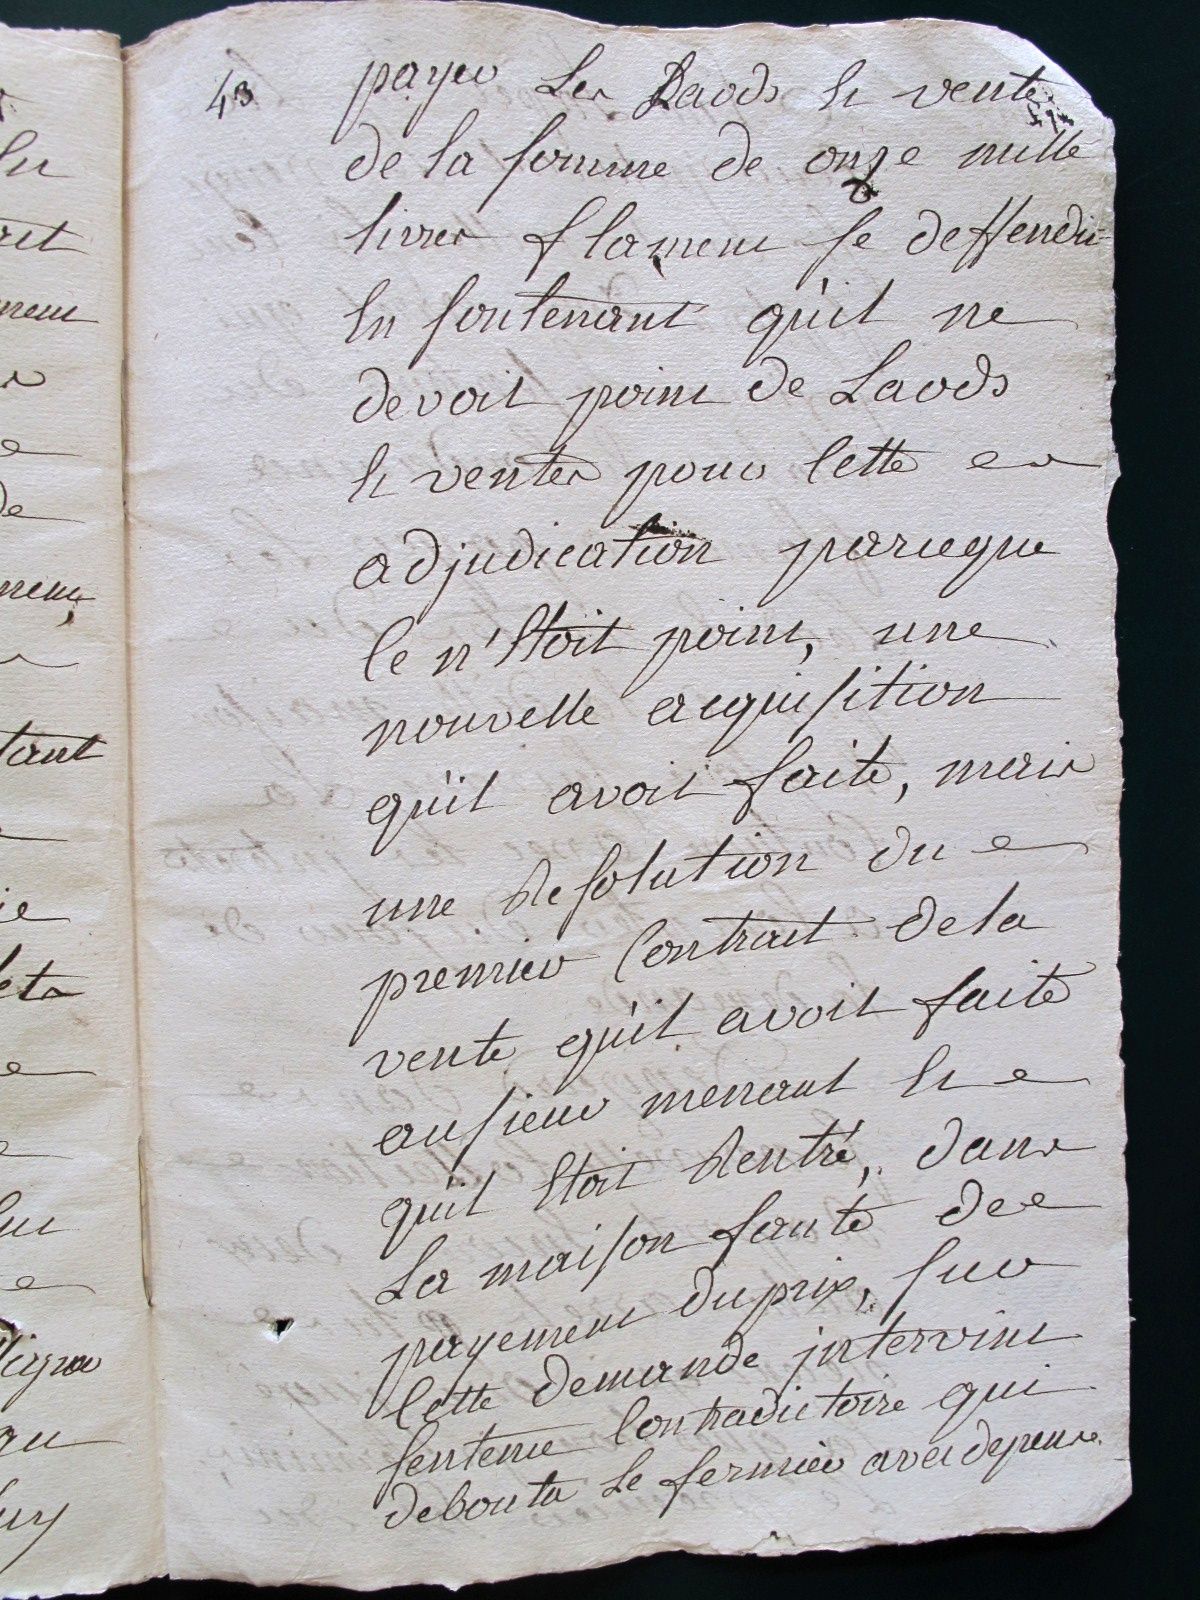 43
payer les Laods et ventes
de la somme de onze mille
livres flament se deffendit
en soutenant qu'il ne
devoit point de Laods
et ventes pour cette
adjudication parceque
ce n'etoit point, une
nouvelle acquisition
qu'il avoit faite, mais
une Resolution du
premier Contract de la
vente qu'il avoit faite
au sieur menant et
qu'il etoit Rentré, dans
La maison faute de
payement du prix, sur
cette demande intervint
sentence Contradictoire qui
debouta le fermier avec depens
ret
tant